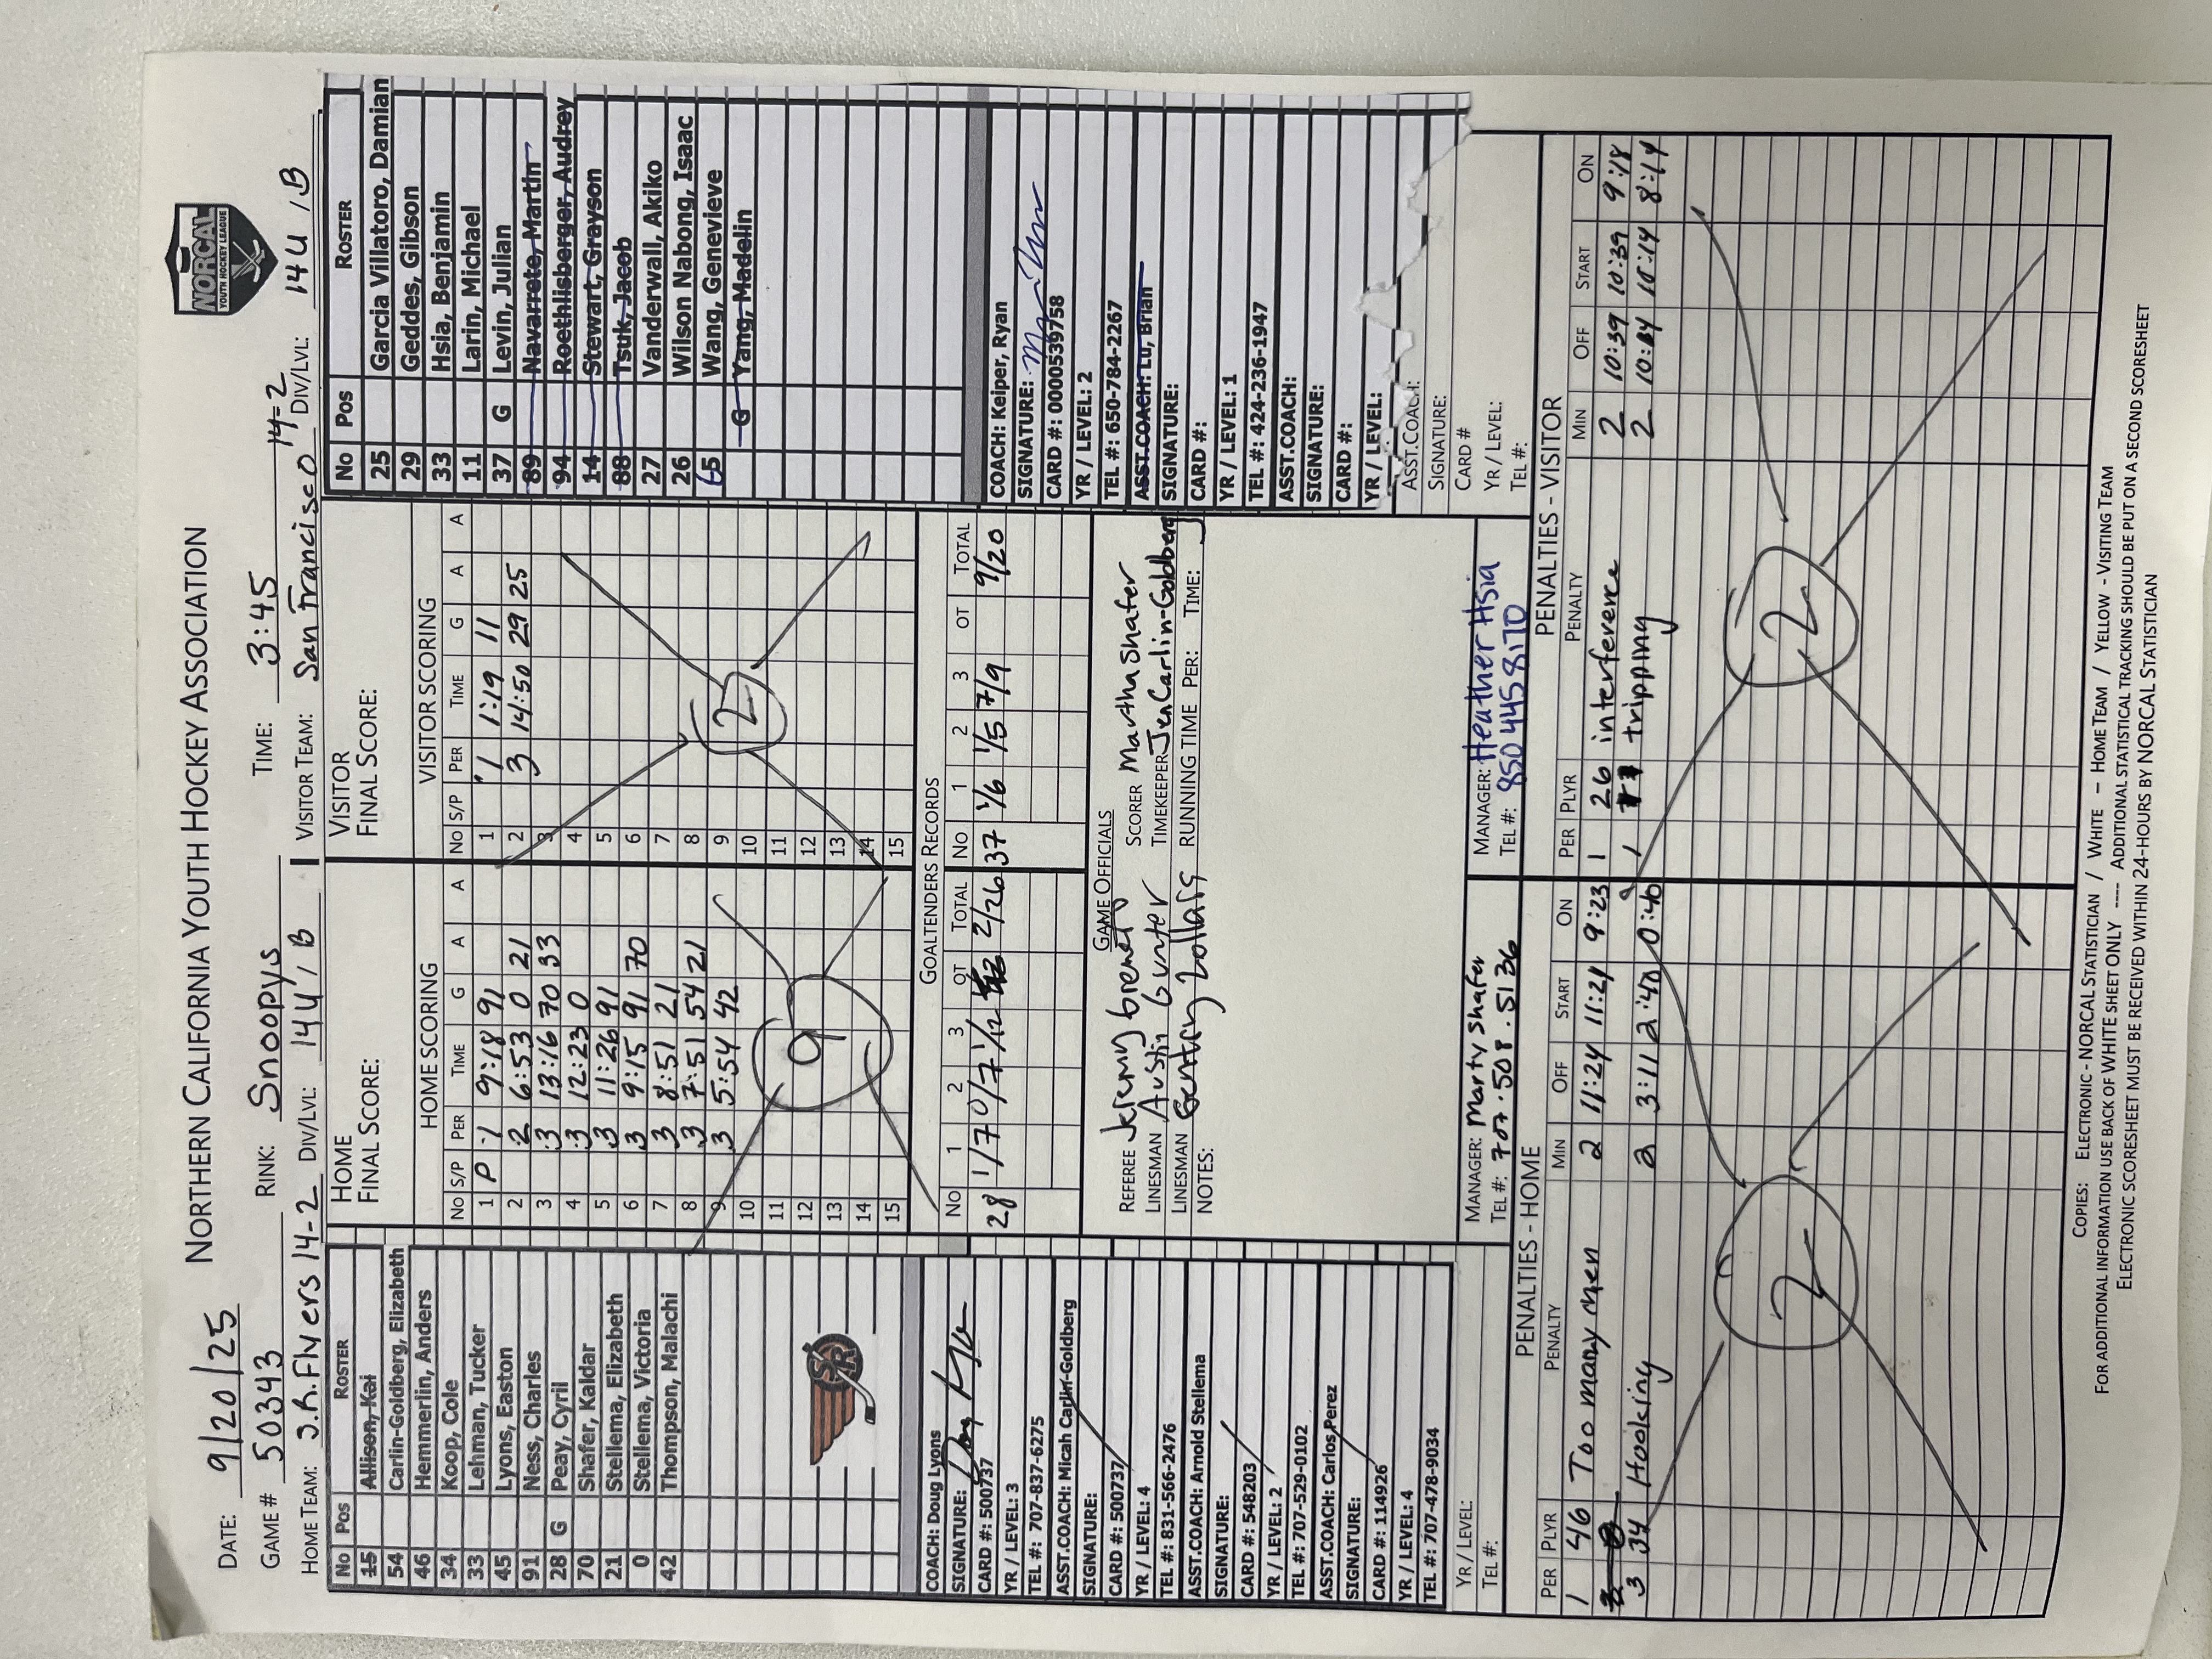 NORTHERN CALIFORNIA YOUTH HOCKEY ASSOCIATION
NORCAL
YOUTH HOCKEY LEAGUE
DATE: 9/20/25
GAME # 50343 RINK: Snoopys TIME: 3:45
HOME TEAM: J.R. Flyers 14-2 DIV/LVL: 14U / B VISITOR TEAM: San Francisco 14-2 DIV/LVL: 14U / B
No Pos ROSTER
15 Allison, Kai
54 Carlin-Goldberg, Elizabeth
46 Hemmerlin, Anders
34 Koop, Cole
33 Lehman, Tucker
45 Lyons, Easton
91 Ness, Charles
28 G Peay, Cyril
70 Shafer, Kaldar
21 Stellema, Elizabeth
0 Stellema, Victoria
42 Thompson, Malachi
SR
COACH: Doug Lyons
SIGNATURE:
CARD #: 500737
YR / LEVEL: 3
TEL #: 707-837-6275
ASST.COACH: Micah Carlin-Goldberg
SIGNATURE:
CARD #: 500737
YR / LEVEL: 4
TEL #: 831-566-2476
ASST.COACH: Arnold Stellema
SIGNATURE:
CARD #: 548203
YR / LEVEL: 2
TEL #: 707-529-0102
ASST.COACH: Carlos Perez
SIGNATURE:
CARD #: 114926
YR / LEVEL: 4
TEL #: 707-478-9034
YR / LEVEL:
TEL #:
HOME
FINAL SCORE:
HOME SCORING
No S/P PER TIME G A A
1 P 1 9:18 91
2 2 6:53 0 21
3 3 13:16 70 33
4 3 12:23 0
5 3 11:26 91
6 3 9:15 91 70
7 3 8:51 21
8 3 7:51 54 21
9 3 5:54 42
10
11
12
13
14
15
9
VISITOR
FINAL SCORE:
VISITOR SCORING
No S/P PER TIME G A A
1 1 1:19 11
2 3 14:50 29 25
3
4
5
6
7
8
9
10
11
12
13
14
15
2
GOALTENDERS RECORDS
No 1 2 3 OT TOTAL No 1 2 3 OT TOTAL
28 1/7 0/7 1/12 2/26 37 1/6 1/5 7/9 9/20
GAME OFFICIALS
REFEREE Jeremy SCORER Martha Shafer
LINESMAN Austin Gunter TIMEKEEPER Jen Carlin-Goldberg
LINESMAN Gentry Zollars RUNNING TIME PER: TIME:
NOTES:
MANAGER: Marty Shafer
TEL #: 707.508.5136
MANAGER: Heather Hsia
TEL #: 850 445 8170
No Pos ROSTER
25 Garcia Villatoro, Damian
29 Geddes, Gibson
33 Hsia, Benjamin
11 Larin, Michael
37 G Levin, Julian
89 Navarrete, Martin
94 Roethlisberger, Audrey
14 Stewart, Grayson
88 Tsuk, Jacob
27 Vanderwall, Akiko
26 Wilson Nabong, Isaac
65 Wang, Genevieve
G Yang, Madelin
COACH: Keiper, Ryan
SIGNATURE:
CARD #: 0000539758
YR / LEVEL: 2
TEL #: 650-784-2267
ASST.COACH: Lu, Brian
SIGNATURE:
CARD #:
YR / LEVEL: 1
TEL #: 424-236-1947
ASST.COACH:
SIGNATURE:
CARD #:
YR / LEVEL:
ASST.COACH:
SIGNATURE:
CARD #
YR / LEVEL:
TEL #:
PENALTIES - HOME
PER PLYR PENALTY MIN OFF START ON
1 46 Too many men 2 11:24 11:24 9:23
3 34 Hooking 2 3:11 2:40 0:40
2
PENALTIES - VISITOR
PER PLYR PENALTY MIN OFF START ON
1 26 interference 2 10:39 10:39 9:18
1 tripping 2 10:14 8:14
2
COPIES: ELECTRONIC - NORCAL STATISTICIAN / WHITE – HOME TEAM / YELLOW - VISITING TEAM
FOR ADDITIONAL INFORMATION USE BACK OF WHITE SHEET ONLY ---- ADDITIONAL STATISTICAL TRACKING SHOULD BE PUT ON A SECOND SCORESHEET
ELECTRONIC SCORESHEET MUST BE RECEIVED WITHIN 24-HOURS BY NORCAL STATISTICIAN